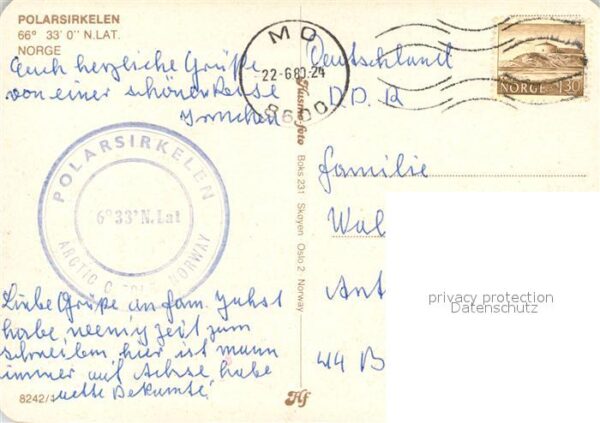 POLARSIRKELEN
66° 33' 0'' N.LAT.
NORGE
Euch herzliche Grüße
von einer schönen Reise
Irmchen
POLARSIRKELEN
6°33' N.Lat
ARCTIC C NORWAY
Liebe Grüße an fam. Juhst
habe wenig zeit zum
schreiben, hier ist mann
immer auf Achse habe
nette Bekannte
8242/
MO
22-6 80-24
8600
NORGE 130
Husmo-foto Boks 231 Skøyen Oslo 2 Norway
Hf
Deutschland
D.D.R
Familie
Wal
Ant
44 B
privacy protection
Datenschutz